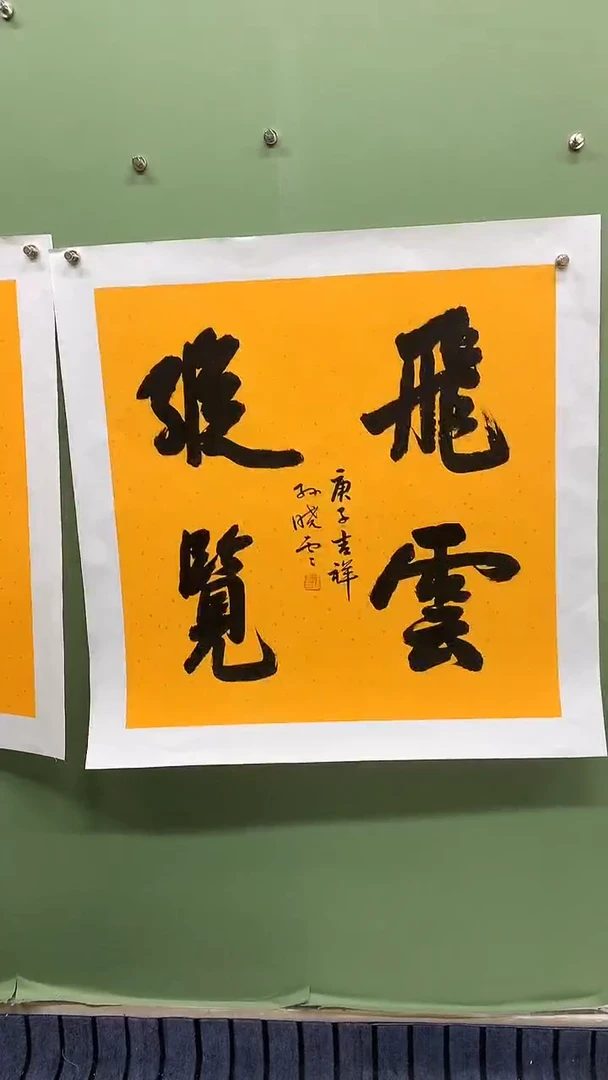 飛雲
縱覽
庚子吉祥
孙晓云